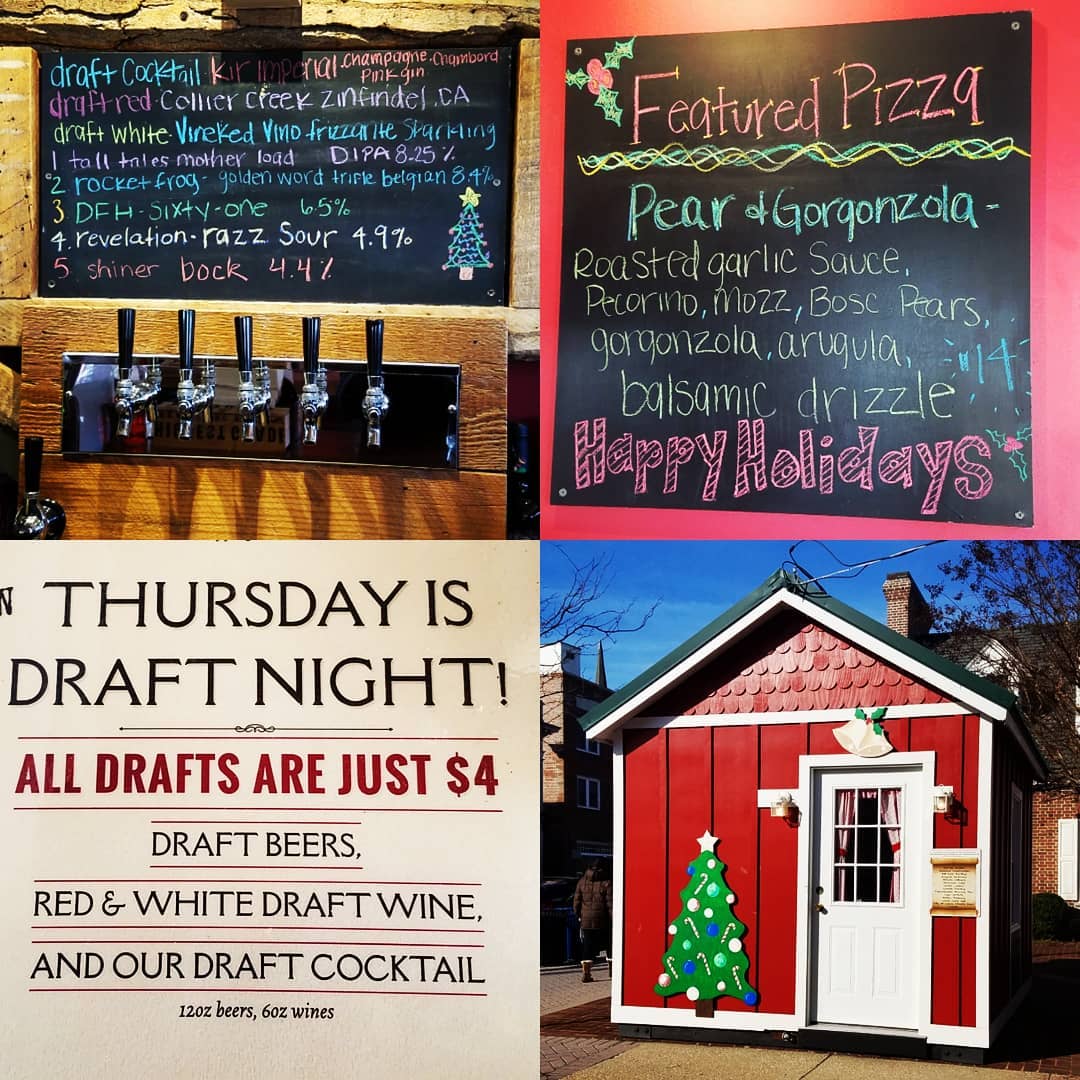 draft Cocktail Kir Imperial. Champagne. Chambord
Pink gin
draft red. Collier Creek Zinfindel. CA
draft white Vineked Vino frizzante Sparkling
1 tall tales mother load DIPA 8.25%
2 rocket frog - golden word triple belgian 8.4%
3 DFH - Sixty-one 6.5%
4. revelation - razz Sour 4.9%
5 shiner bock 4.4%
Featured Pizza
Pear & Gorgonzola -
Roasted garlic Sauce,
Pecorino, Mozz, Bosc Pears,
gorgonzola, arugula,
14
balsamic drizzle
Happy Holidays
THURSDAY IS
DRAFT NIGHT!
ALL DRAFTS ARE JUST $4
DRAFT BEERS,
RED & WHITE DRAFT WINE,
AND OUR DRAFT COCKTAIL
12oz beers, 6oz wines